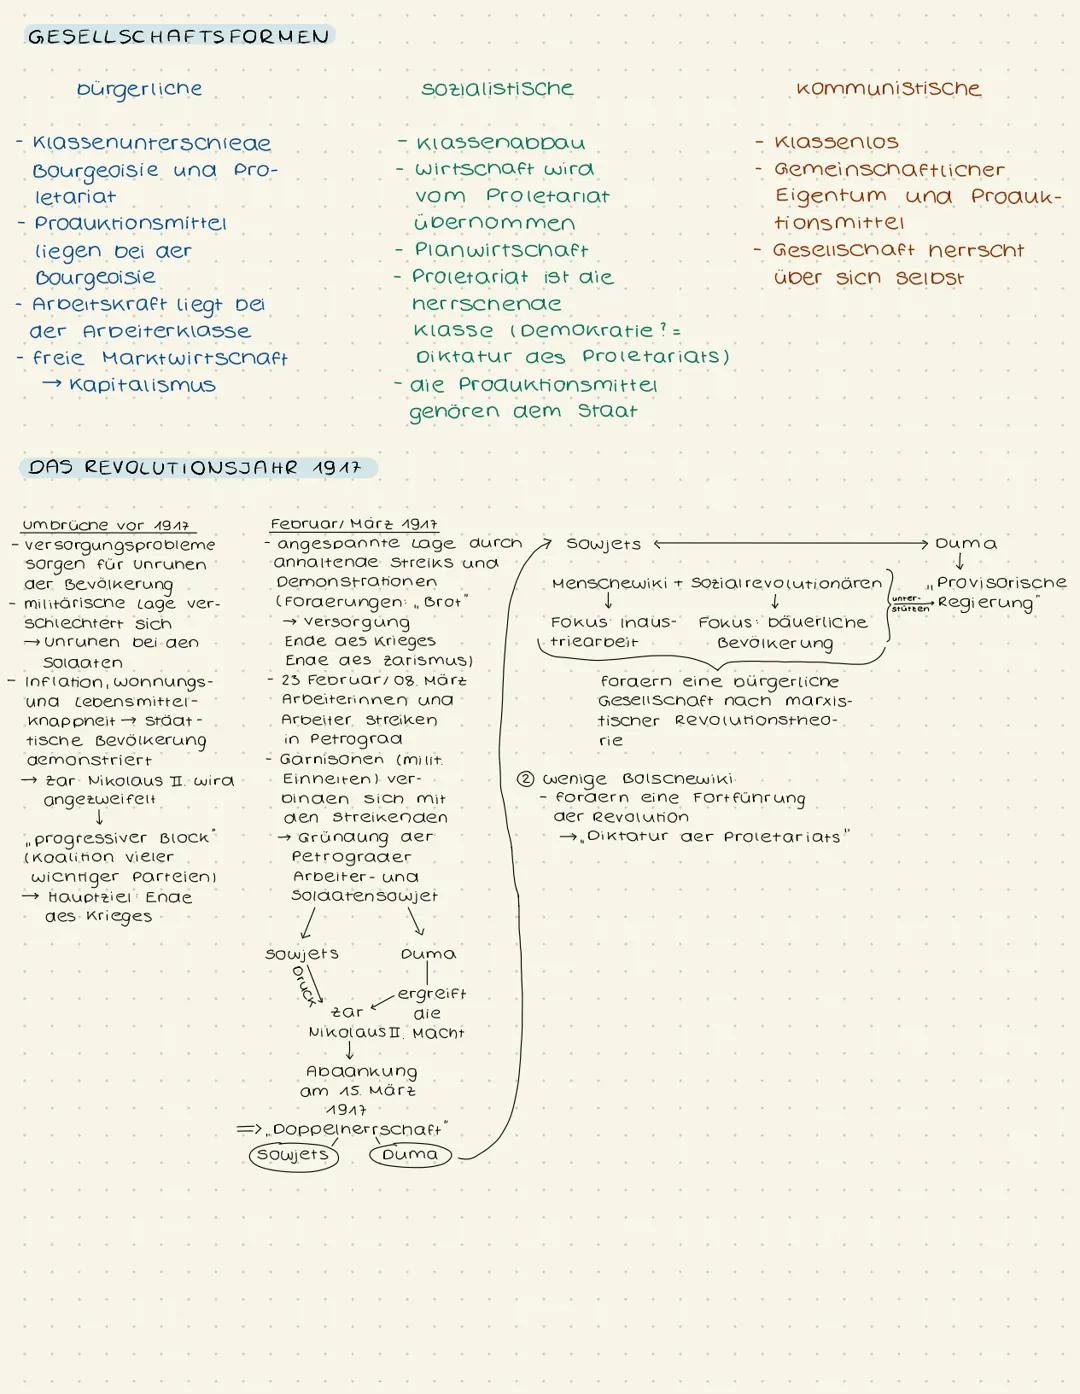 GESELLSCHAFTSFORMEN
bürgerliche
- Klassenunterschiede
Bourgeoisie und Pro-
letariat
- Produktionsmittel
liegen bei der
Bourgeoisie
- Arbeitskraft liegt bei
der Arbeiterklasse
- freie Marktwirtschaft
→ Kapitalismus
sozialistische
- Klassenabbau
- Wirtschaft wird
vom Proletariat
übernommen
- Planwirtschaft
- Proletariat ist die
herrschende
Klasse (Demokratie? =
Diktatur des Proletariats)
- die Produktionsmittel
gehören dem Staat
kommunistische
- Klassenlos
- Gemeinschaftlicher
Eigentum und Produk-
tionsmittel
- Gesellschaft herrscht
über sich selbst
DAS REVOLUTIONSJAHR 1917
Umbrüche vor 1917
- Versorgungsprobleme
sorgen für Unruhen
der Bevölkerung
- militärische Lage ver-
schlechtert sich
→ Unruhen bei den
Soldaten
- Inflation, Wohnungs-
und Lebensmittel-
knappheit → städt-
tische Bevölkerung
demonstriert
→ Zar Nikolaus II. wird
angezweifelt
↓
„progressiver Block"
(Koalition vieler
wichtiger Parteien)
→ Hauptziel: Ende
des Krieges
Februar/ März 1917
- angespannte Lage durch
anhaltende Streiks und
Demonstrationen
(Forderungen: „Brot"
→ Versorgung
Ende des Krieges
Ende des Zarismus)
- 23 Februar/ 08. März
Arbeiterinnen und
Arbeiter streiken
in Petrograd
- Garnisonen (milit.
Einheiten) ver-
binden sich mit
den Streikenden
→ Gründung der
Petrograder
Arbeiter- und
Soldatensowjet
Sowjets Duma
Druck
ergreift
die
Macht
Zar
Nikolaus II.
↓
Abdankung
am 15. März
1917
=> „Doppelherrschaft"
Sowjets Duma
Sowjets ↔ Duma
↓
„Provisorische
Regierung"
Menschewiki + Sozialrevolutionären
unter-
stützen
↓ ↓
Fokus: Indus-
triearbeit
Fokus: bäuerliche
Bevölkerung
fordern eine bürgerliche
Gesellschaft nach marxis-
tischer Revolutionstheo-
rie
② wenige Bolschewiki
- fordern eine Fortführung
der Revolution
→ „Diktatur der Proletariats"